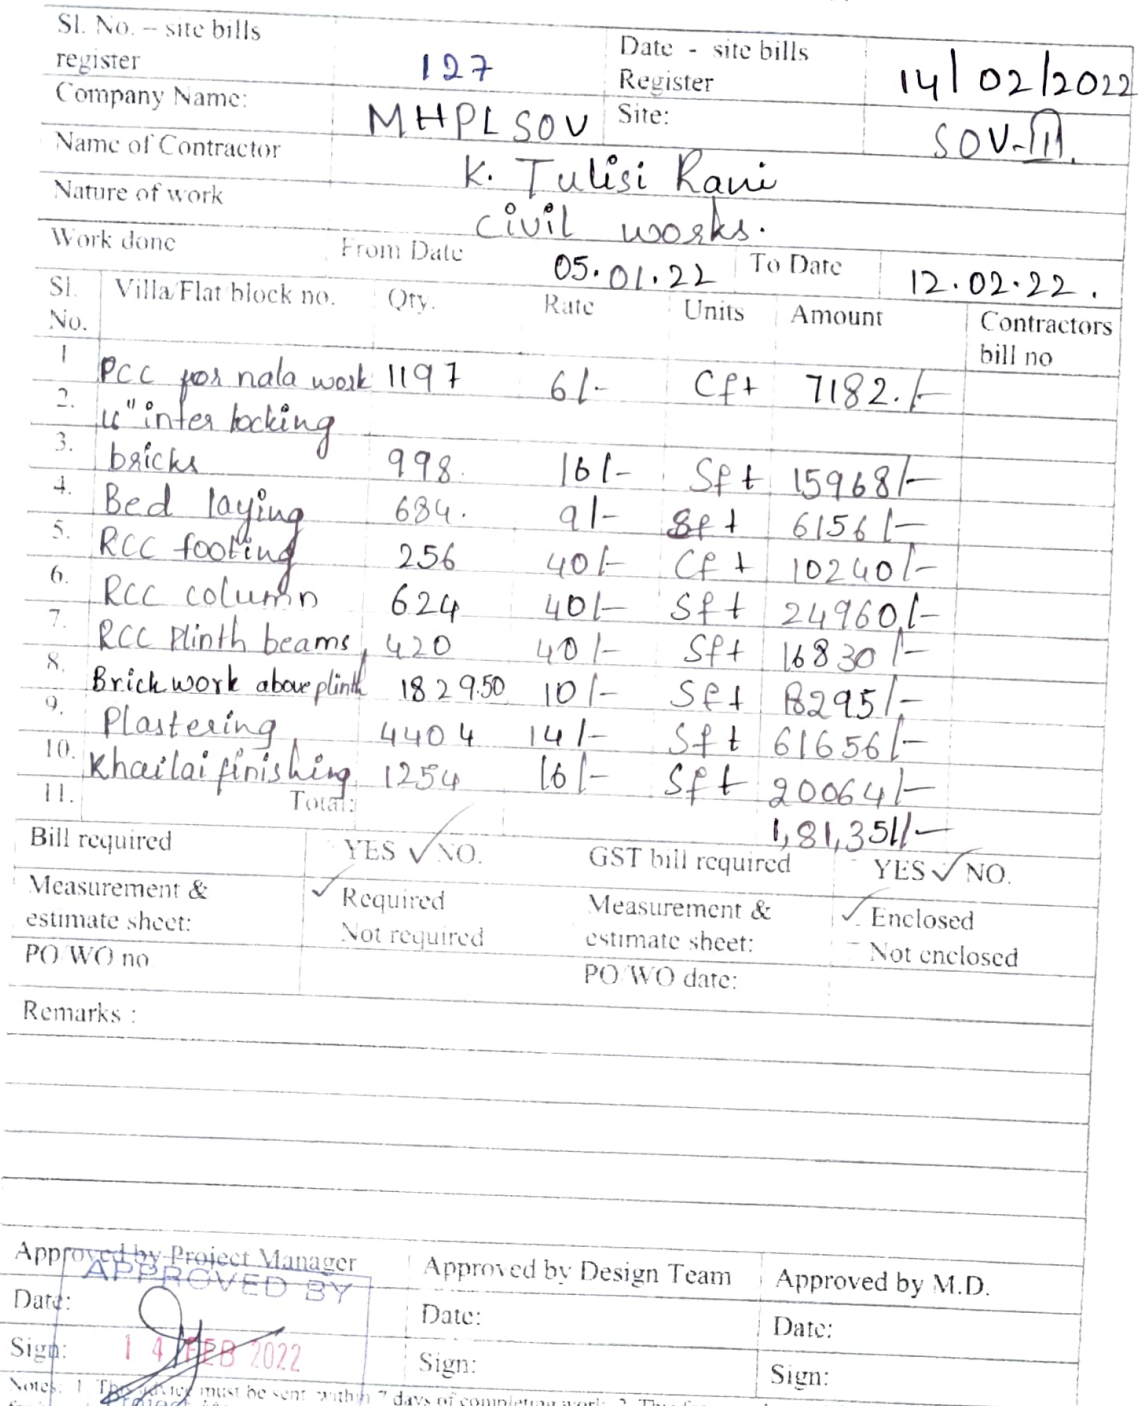 Sl. No. – site bills register 127 Date - site bills Register 14/02/2022
Company Name: MHPL SOV Site: SOV-III.
Name of Contractor K. Tulisi Rani
Nature of work civil works.
Work done From Date 05.01.22 To Date 12.02.22.
Sl. No. Villa/Flat block no. Qty. Rate Units Amount Contractors bill no
1 PCC for nala work 1197 6/- Cft 7182./-
2. 4" inter locking
3. bricks 998. 16/- Sft 15968/-
4. Bed laying 684. 9/- Sft 6156/-
5. RCC footing 256 40/- Cft 10240/-
6. RCC column 624 40/- Sft 24960/-
7. RCC Plinth beams, 420 40/- Sft 16830/-
8. Brick work above plinth 1829.50 10/- Sft 18295/-
9. Plastering 4404 14/- Sft 61656/-
10. Khailai finishing 1254 16/- Sft 20064/-
11. Total: 1,81,351/-
Bill required YES ✓ NO. GST bill required YES ✓ NO.
Measurement & estimate sheet: ✓ Required Measurement & estimate sheet: ✓ Enclosed
Not required - Not enclosed
PO/WO no PO/WO date:
Remarks :
Approved by Project Manager Approved by Design Team Approved by M.D.
APPROVED BY
Date: Date: Date:
Sign: 14 FEB 2022 Sign: Sign:
Notes: 1. This advice must be sent within 7 days of completing work. 2.